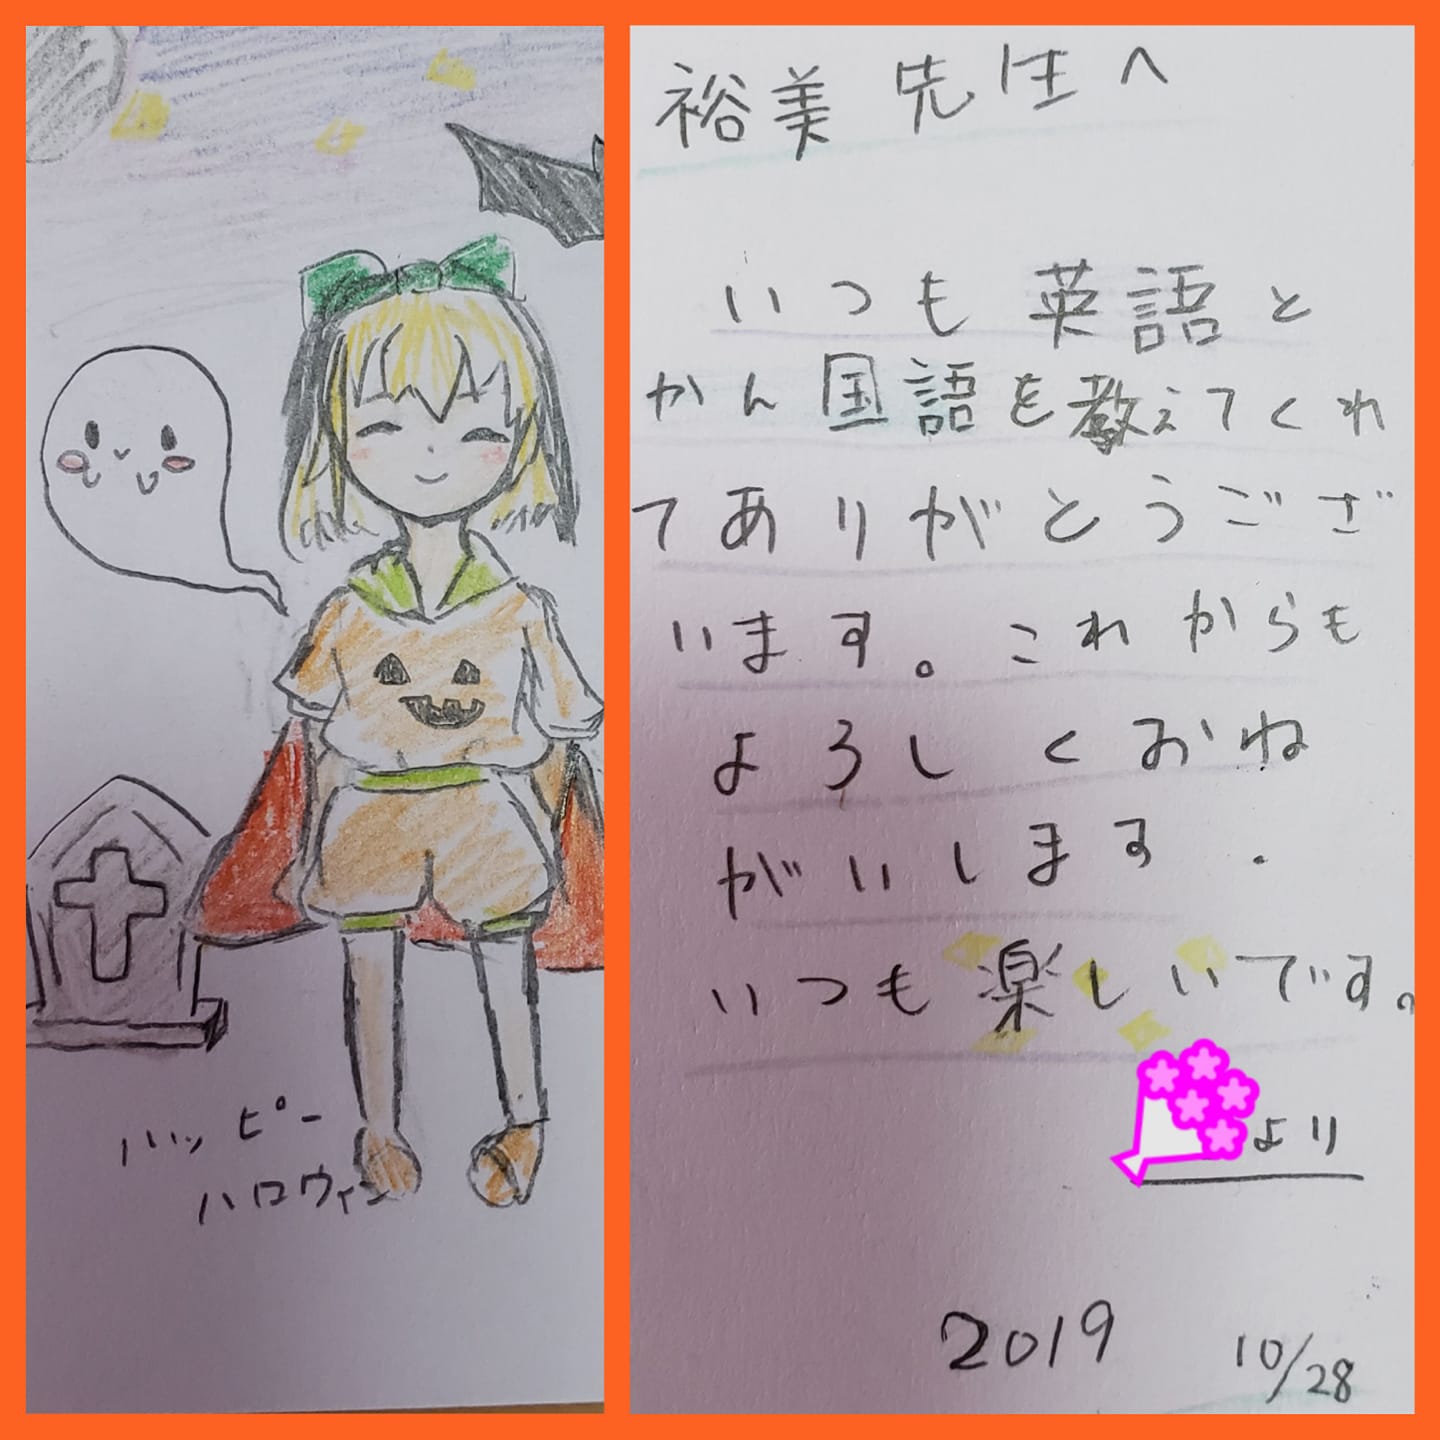 ハッピー
ハロウィン
裕美先生へ
いつも英語と
かん国語を教えてくれ
てありがとうござ
います。これからも
よろしくおね
がいします.
いつも楽しいです。
より
2019 10/28